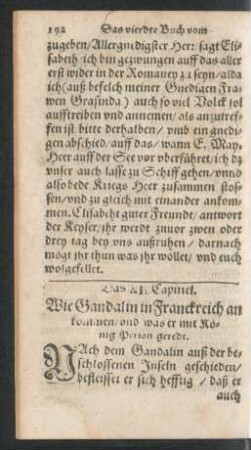 192 Das vierdte Buch vom
zugeben / Allergnedigster Herr sagt Elisabeth
ich bin gezwungen auff das aller
erst wider in der Romaney zu seyn / alda
ich (auß befelch meiner Gnedigen Frawen
Grasinda) auch so viel Volck sol
aufftreiben vnd annemen / als anzutreffen
ist bitte derhalben / vmb ein gnedigen
abschied / auff das / wann E. May.
Heer auff der See vor vberführet / ich
vnser auch lasse zu Schiff gehen / vnnd
also bede Kriegs Heer zusammen stossen
/ vnd zu gleich mit einander ankommen.
Elisabeht guter Freundt / antwort
der Keyser / ihr werdt zuuor zwen oder
drey tag bey vns außruhen / darnach
mögt ihr thun was jhr wöllet / vnd euch
wolgefellet.
Das Capittel.
Wie Gandalin in Franckreich an
kommen / vnd was er mit Kö-
nig Perion geredt.
NAch dem Gandalin auß der beschlossenen
Inseln geschieden /
befleisset er sich hefftig / daß er
auch